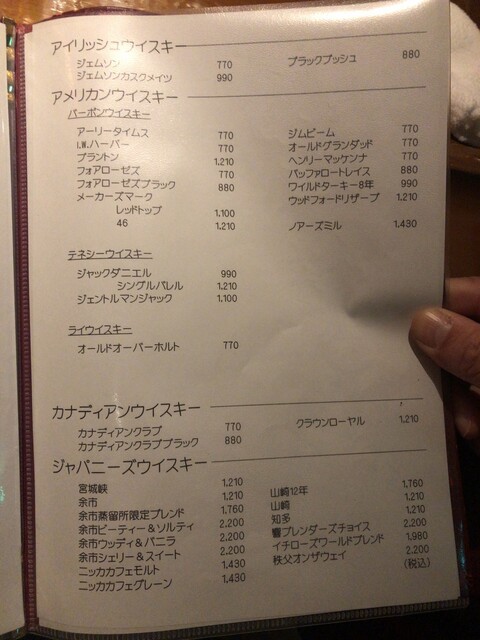 アイリッシュウイスキー
ジェムソン 770 ブラックブッシュ 880
ジェムソンカスクメイツ 990
アメリカンウイスキー
バーボンウイスキー
アーリータイムス 770 ジムビーム 770
I.W.ハーパー 770 オールドグランダッド 770
ブラントン 1,210 ヘンリーマッケンナ 770
フォアローゼズ 770 バッファロートレイス 880
フォアローゼズブラック 880 ワイルドターキー8年 990
メーカーズマーク ウッドフォードリザーブ 1,210
レッドトップ 1,100
46 1,210 ノアーズミル 1,430
テネシーウイスキー
ジャックダニエル 990
シングルバレル 1,210
ジェントルマンジャック 1,100
ライウイスキー
オールドオーバーホルト 770
カナディアンウイスキー
カナディアンクラブ 770 クラウンローヤル 1,210
カナディアンクラブブラック 880
ジャパニーズウイスキー
宮城峡 1,210 山崎12年 1,760
余市 1,210 山崎 1,210
余市蒸留所限定ブレンド 1,760 知多 1,210
余市ピーティー&ソルティ 2,200 響ブレンダーズチョイス 2,200
余市ウッディ&バニラ 2,200 イチローズワールドブレンド 1,980
余市シェリー&スイート 2,200 秩父オンザウェイ 2,200
ニッカカフェモルト 1,430 (税込)
ニッカカフェグレーン 1,430